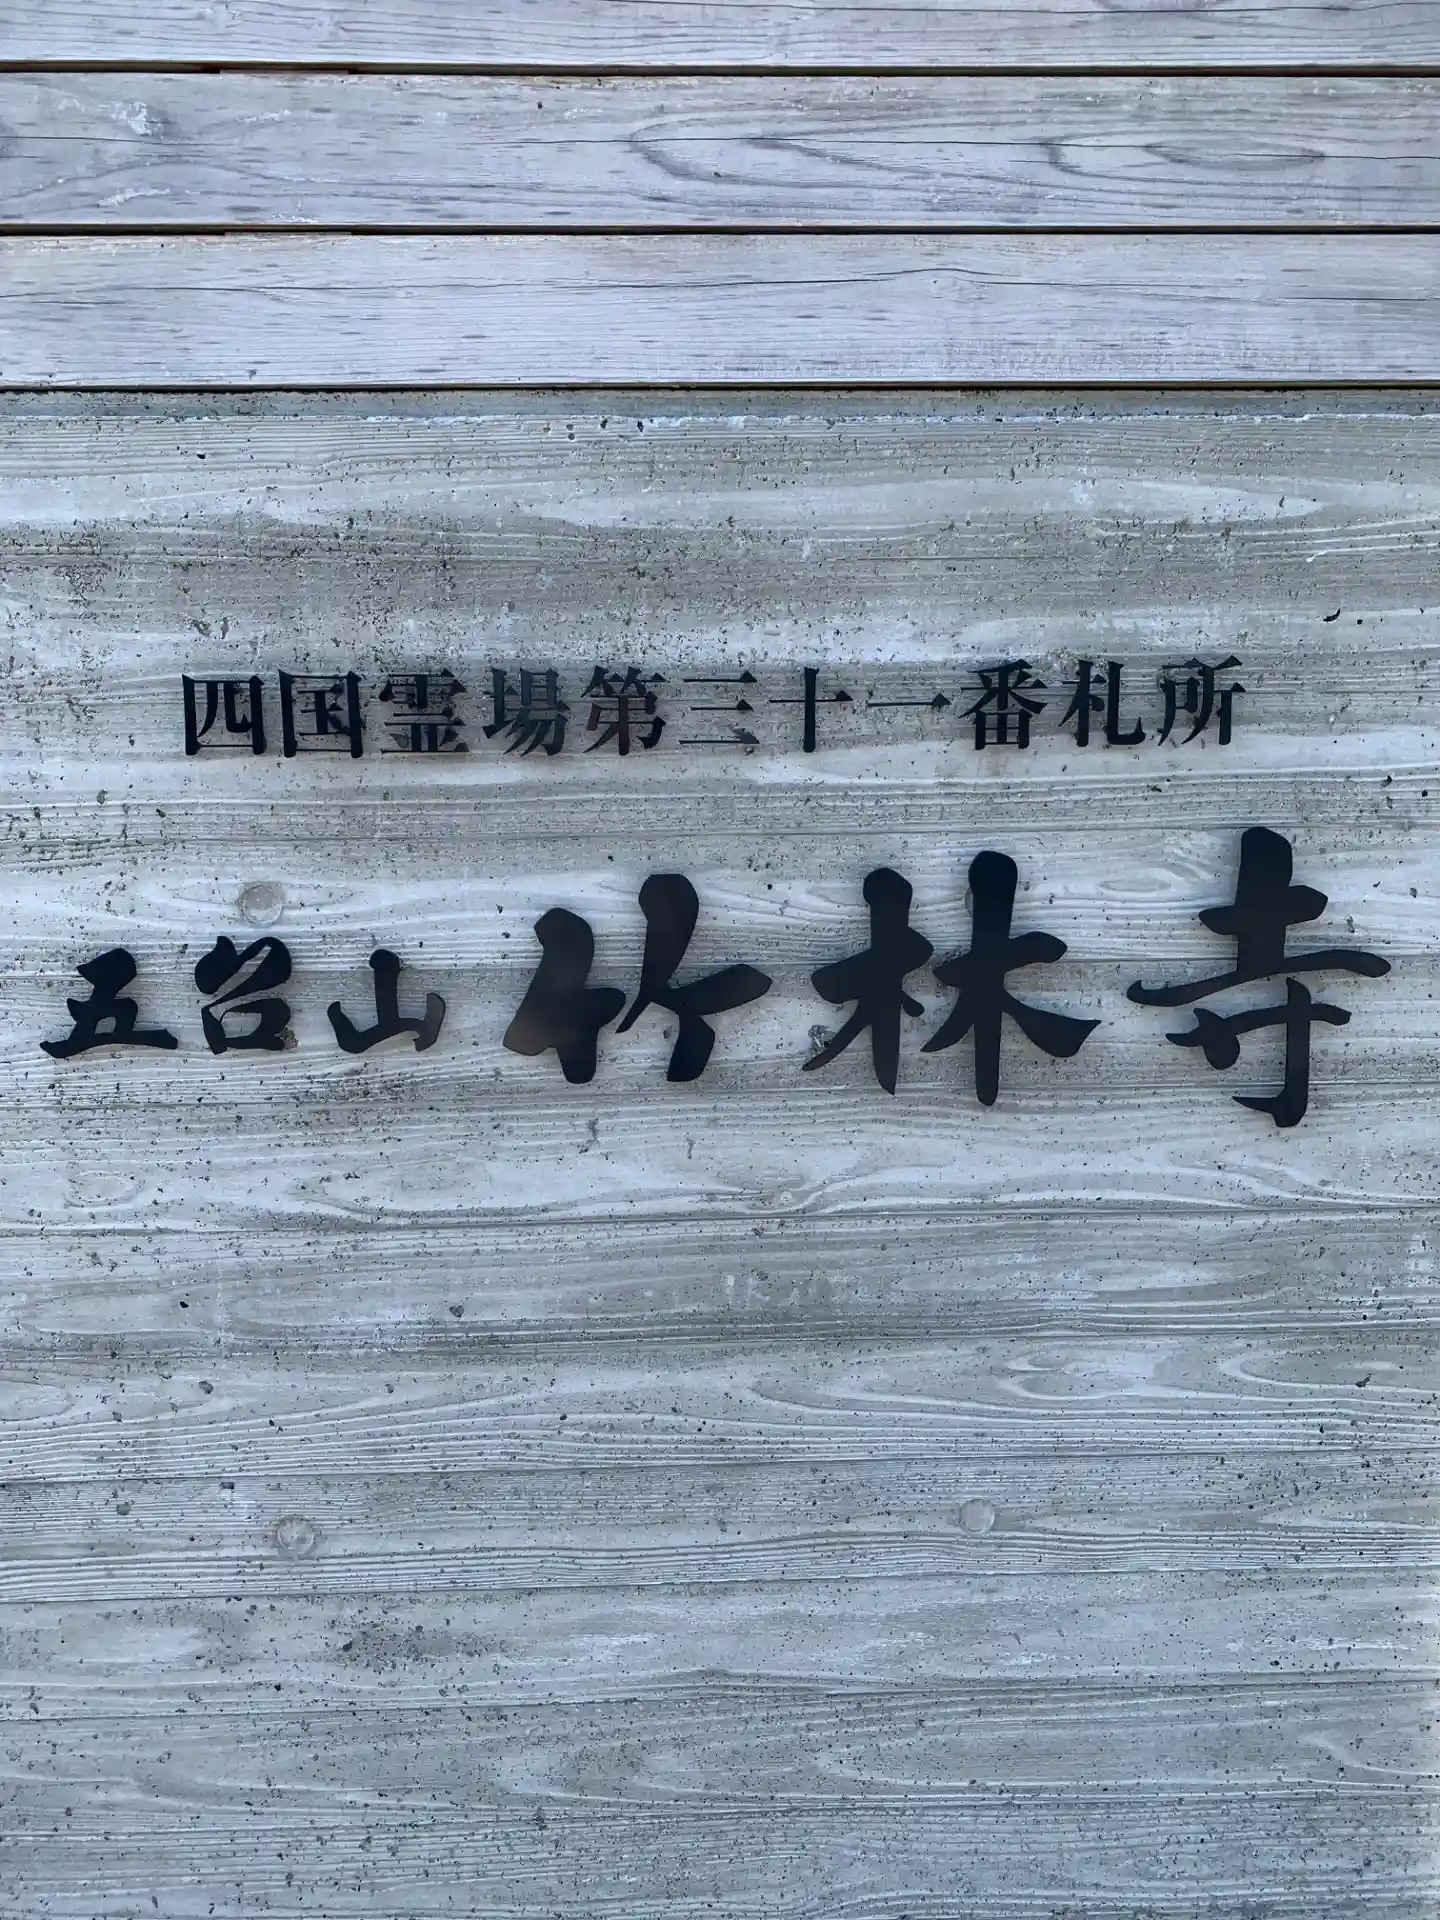 四国霊場第三十一番札所
五台山 竹林寺